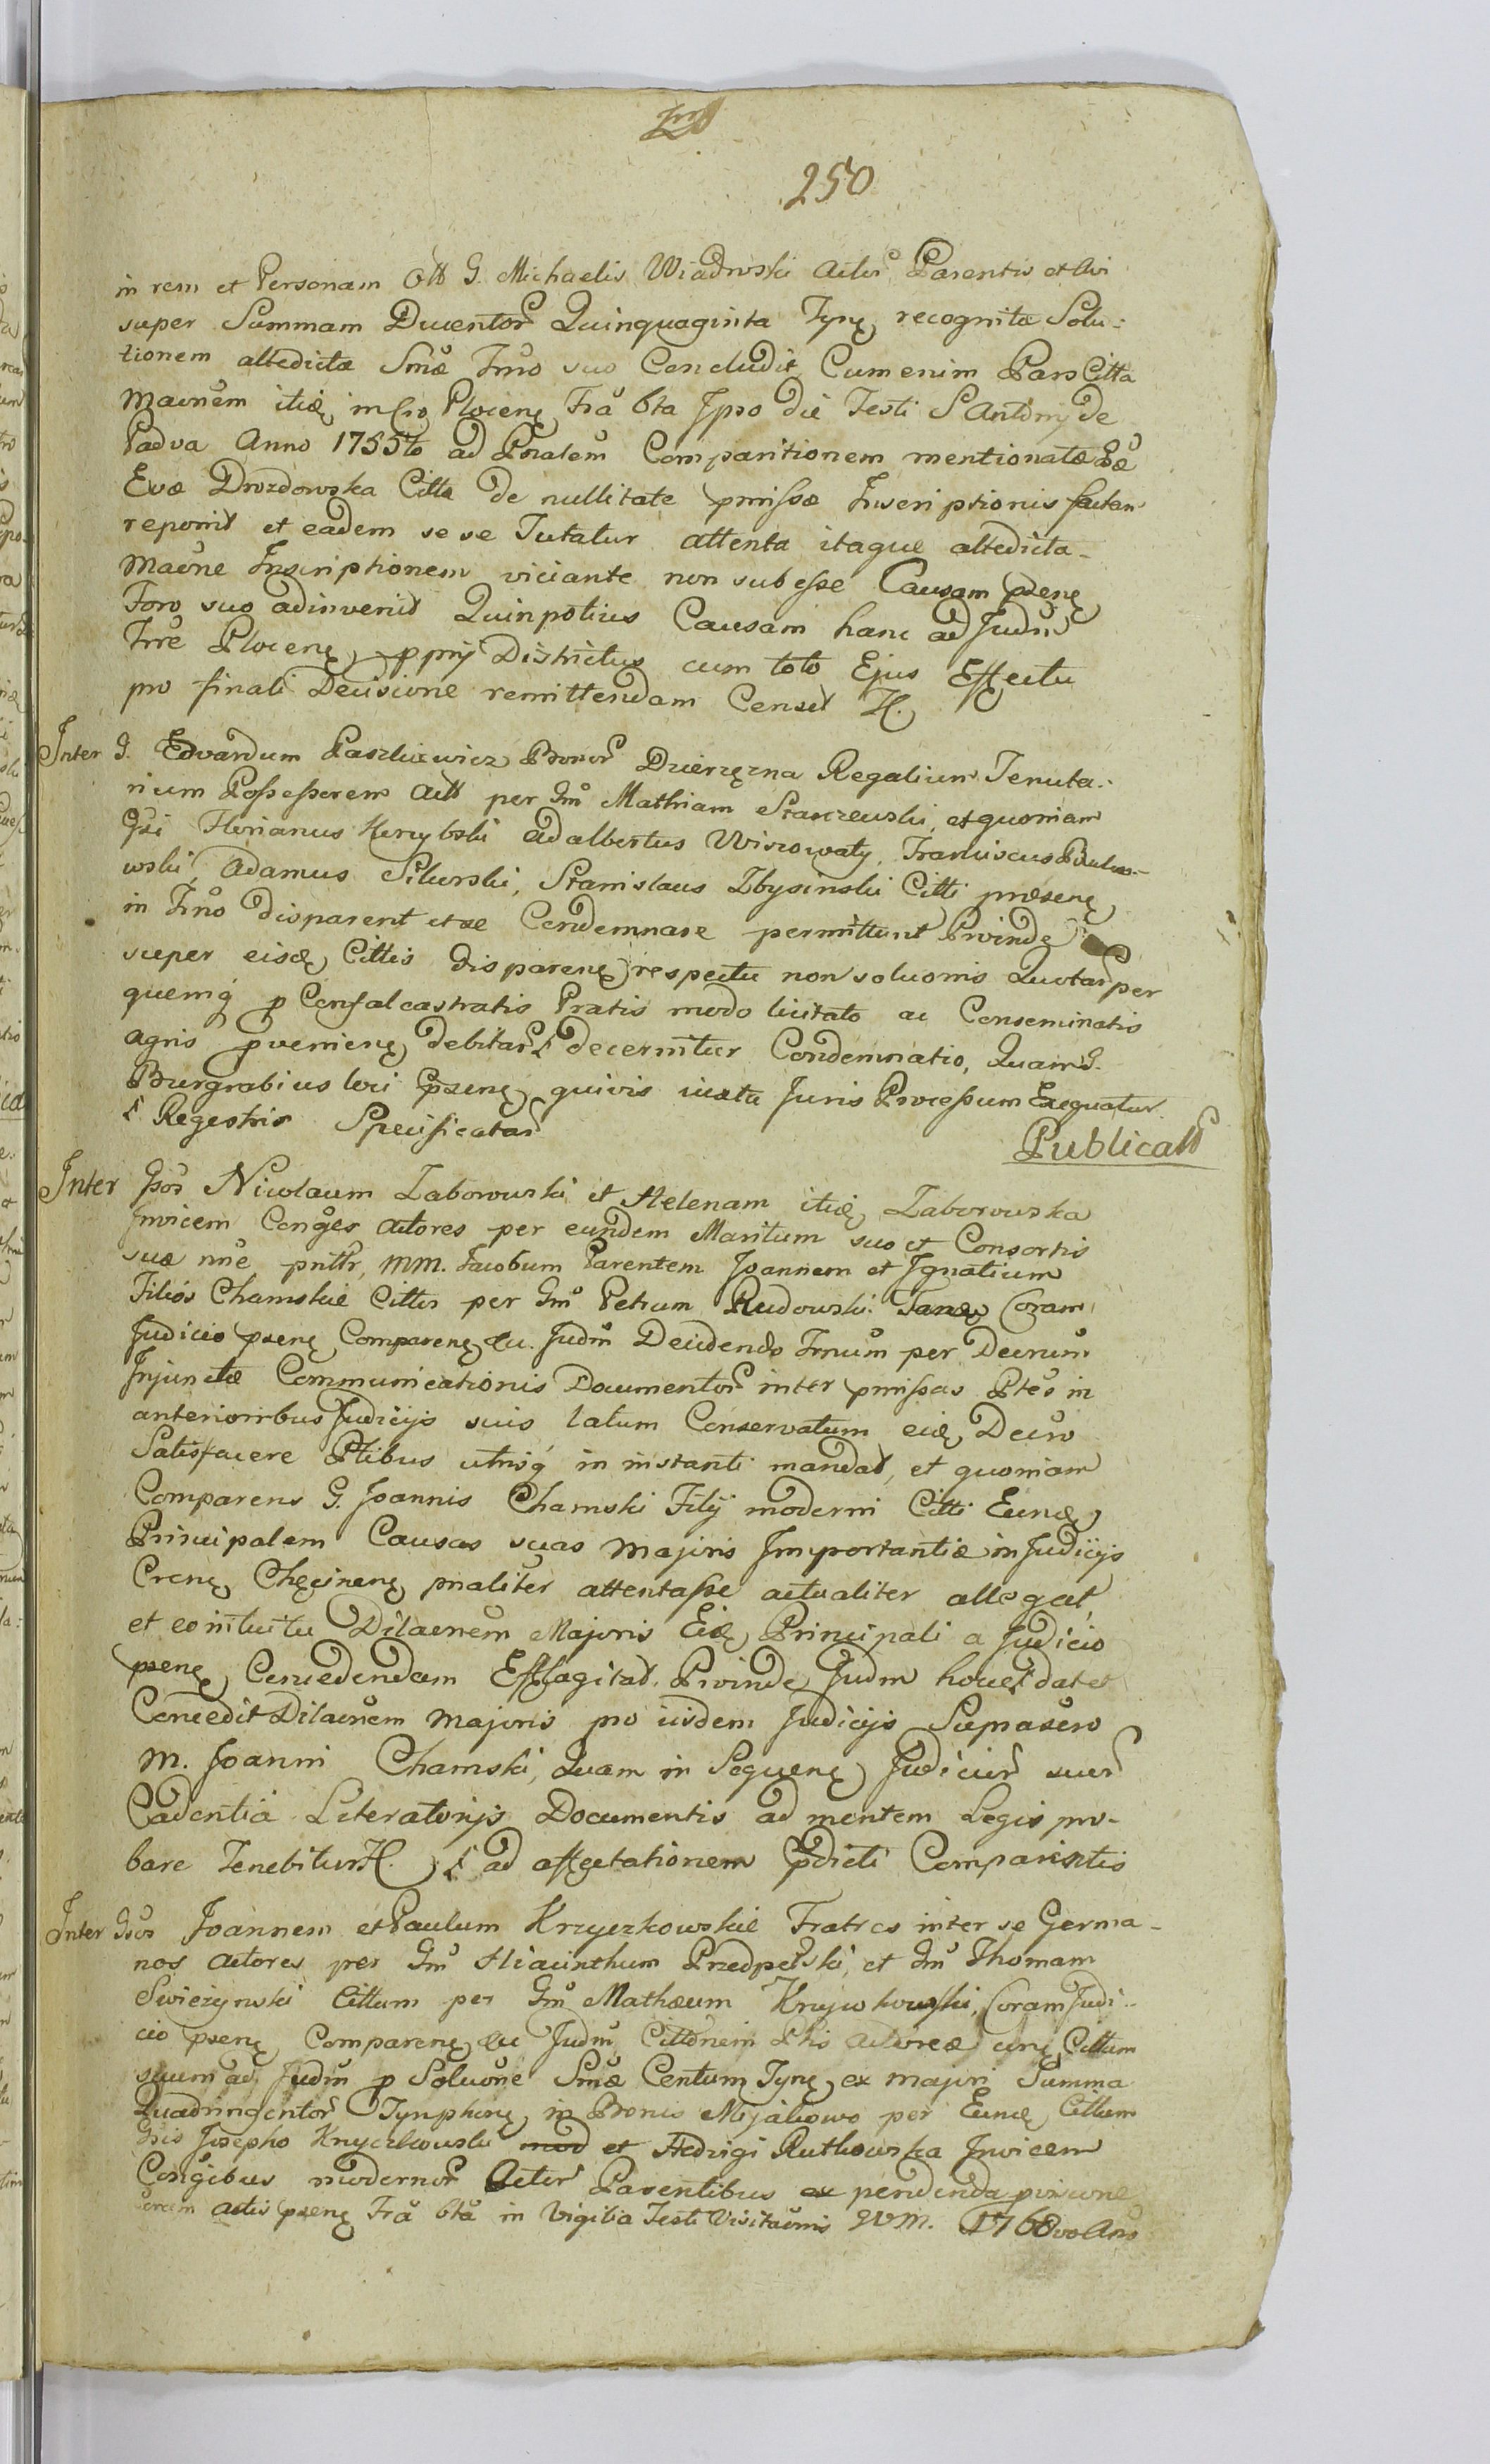 250
in rem et Personam Olt G. Michaelis Wiadrowski Actor Parentis et Avi
super Summam Ducentor Quinquaginta Tynę recognitæ Solu:
tionem altedictæ Smæ Fmo suo Concludit, Cum enim Pars Citta
Maonem itię in Cro Plocenę Fra bta Ipso die Festi S Antonij de
Padua Anno 1755to ad Pnalem Comparitionem mentionatæ Gæ
Evæ Drozdowska Citta de nullitate pmissæ Inscriptionis factam
reponit et eadem se se Tutatur attenta itaque altedicta
Maone Inscriptionem viciante non subesse Causam psenę
Foro suo adinvenit Quinpotius Causam hanc ad Judm
Trre Plocenę pprij Districtus cum toto Ejus Effectu
pro finali Decisione remittendam Censet H.
Inter G. Edvardum Paszkiewicz Bonor Dzierzęzna Regalium Tenuta:
rium Possessorem Act per Gm Mathiam Starczewski, et quoniam
Gsi Florianus Kereybski Adalbertus Wiszowaty, Franciscus
wski, Adamus Sikorski, Stanislaus Zbysinski Citti præsenę
in Fmo disparent et se Condemnare permittunt Proinde
super eisdę Cittis disparenę respectu non soluonis Quotar per
quemq p Confalcastratis Pratis modo licitato ac Conseminatis
agris pvenienę debitar decernitur Condemnatio, Quam G.
Burgrabius loci psenę quivis iuxta Juris Processum Exequatur.
Regestris Specificatar
Publicatt
Inter Gsos Nicolaum Zaborowski et Helenam itię Zaborowska
Invicem Conges Actores per eundem Maritum suo et Consortis
suæ nne pnttr, MM. Jacobum Parentem Joannem et Ignatium
Filios Chamskie Cittos per Gm Petrum Rudowski Coram
Judicio psenę Comparenę Judm Decidendo Fmum per Decrum
Injunctæ Communicationis Documentor inter pmissas Ptes in
anterioribus Judicijs suis latum Conservatum eię Decro
Satisfacere Ptibus utrisq in instanti mandat, et quoniam
Comparens G. Joannis Chamski Filij moderni Citti Eundę
Principalem Causas suas Majoris Importantiæ in Judicijs
Crenę Chęcinenę pnaliter attentasse actualiter allegat,
et eo intuitu Dilaonem Majoris Eię Principali a Judicio
psenę Concedendam Efflagitat. Proinde Judm hocce dat et
Concedit Dilaonem Majoris pro iisdem Judicijs Suprasero
M. Joanni Chamski, Quam in Sequenę Judicior suor
Cadentia Literatorijs Documentis ad mentem Legis pro-
bare Tenebitur H. ad affectationem pdicti Comparentis
Inter Gsos Joannem et Paulum Krzyczkowskie Fratres inter se Germa-
nos Actores per Gm Hiacinthum Przedpełski, et Gm Thomam
Swieżynski Cittum per Gm Mathæum Krzywkowski, Coram Judi-
cio psenę Comparenę Judm Cittonem Ptis Actoreæ Cittum
suum ad Judm p Soluone Smæ Centum Tynę ex majori Summa
Quadringentor Tynphonę in Bonis Mijakowo per Eundę Cittum
Gsis Josepho Krzyczkowski et Hedvigi Rutkowska Invicem
Congibus modernor Actor Parentibus pendenda
coram actis psenę Fra bta in Vigilia Festi Visitaonis BVM. 1768vo Ano